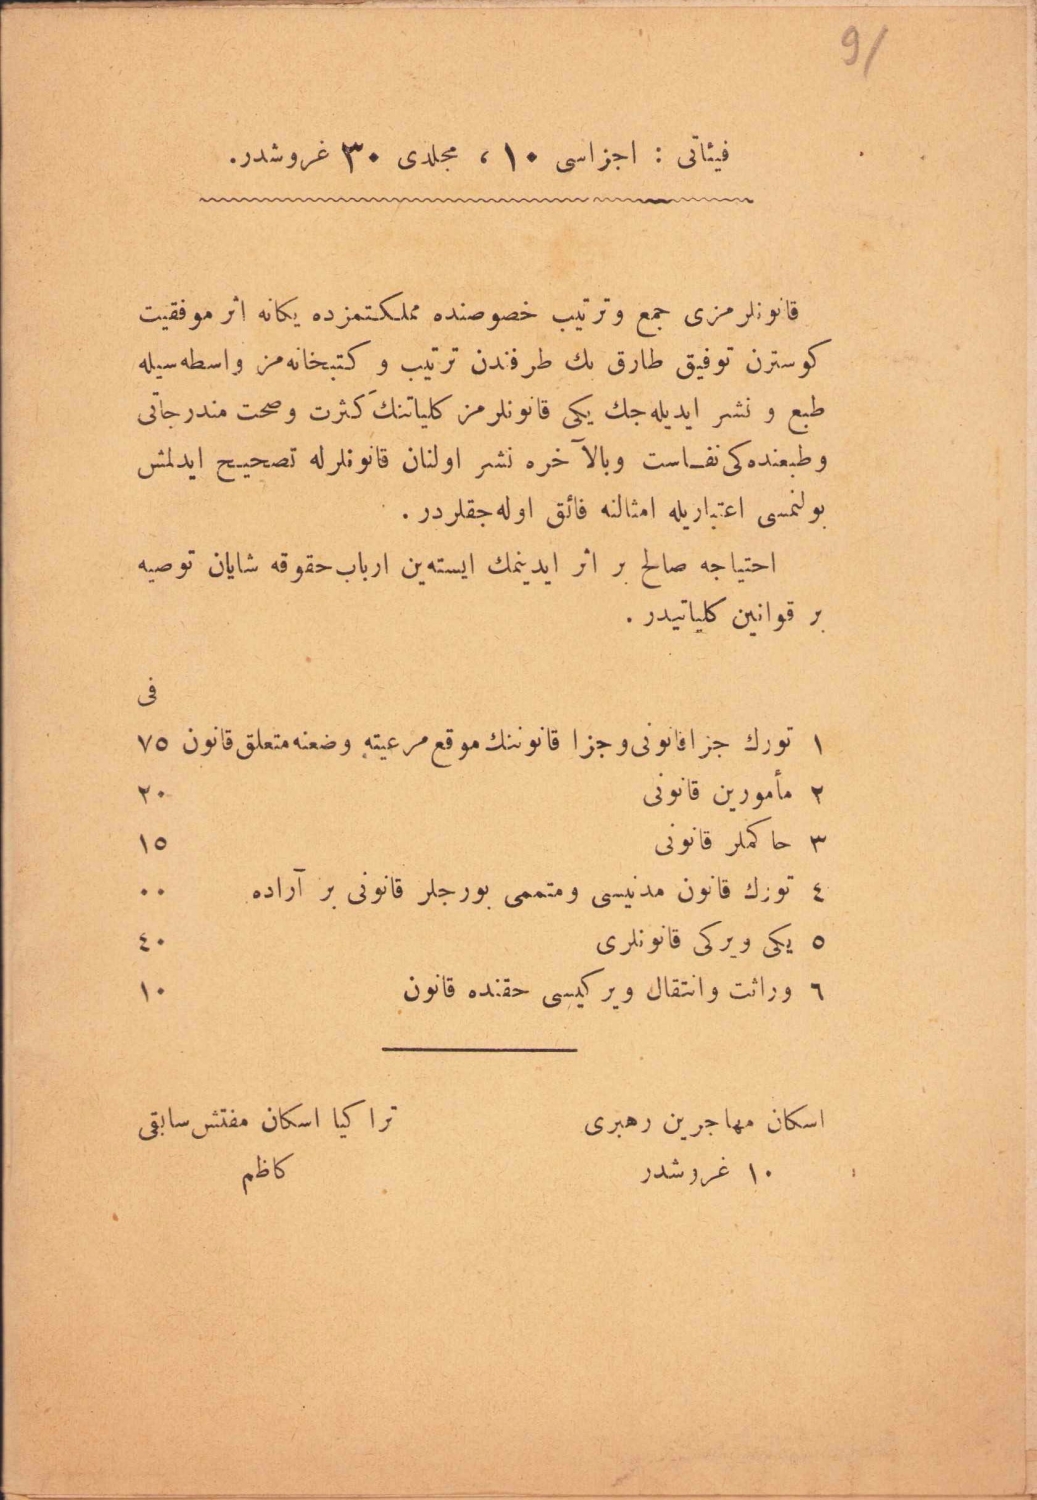 91
فیئاتی : اجزاسی ۱۰ ، مجلدی ۳۰ غروشدر.
قانونلرمزی جمع وترتیب خصوصنده مملكتمزده یكانه اثر موفقیت
كوسترن توفیق طارق بك طرفندن ترتیب و كتبخانه‌مز واسطه‌سیله
طبع و نشر ایدیله‌جك یكی قانونلرمز كلیاتنك كثرت وصحت مندرجاتی
وطبعنده‌كی نفاست وبالآخره نشر اولنان قانونلرله تصحیح ایدلمش
بولنمسی اعتباریله امثالنه فائق اوله‌جقلردر .
احتیاجه صالح بر اثر ایدینمك ایسته‌ین ارباب حقوقه شایان توصیه
بر قوانین كلیاتیدر .
فی
۱ تورك جزا قانونی وجزا قانوننك موقع مرعیته وضعنه متعلق قانون ۷۵
۲ مأمورین قانونی ۲۰
۳ حاكملر قانونی ۱۵
٤ تورك قانون مدنیسی ومتممی بورجلر قانونی بر آراده ۰۰
۵ یكی ویركی قانونلری ٤۰
٦ وراثت وانتقال ویركیسی حقنده قانون ۱۰
اسكان مهاجرین رهبری
۱۰ غروشدر
تراكیا اسكان مفتش سابقی
كاظم